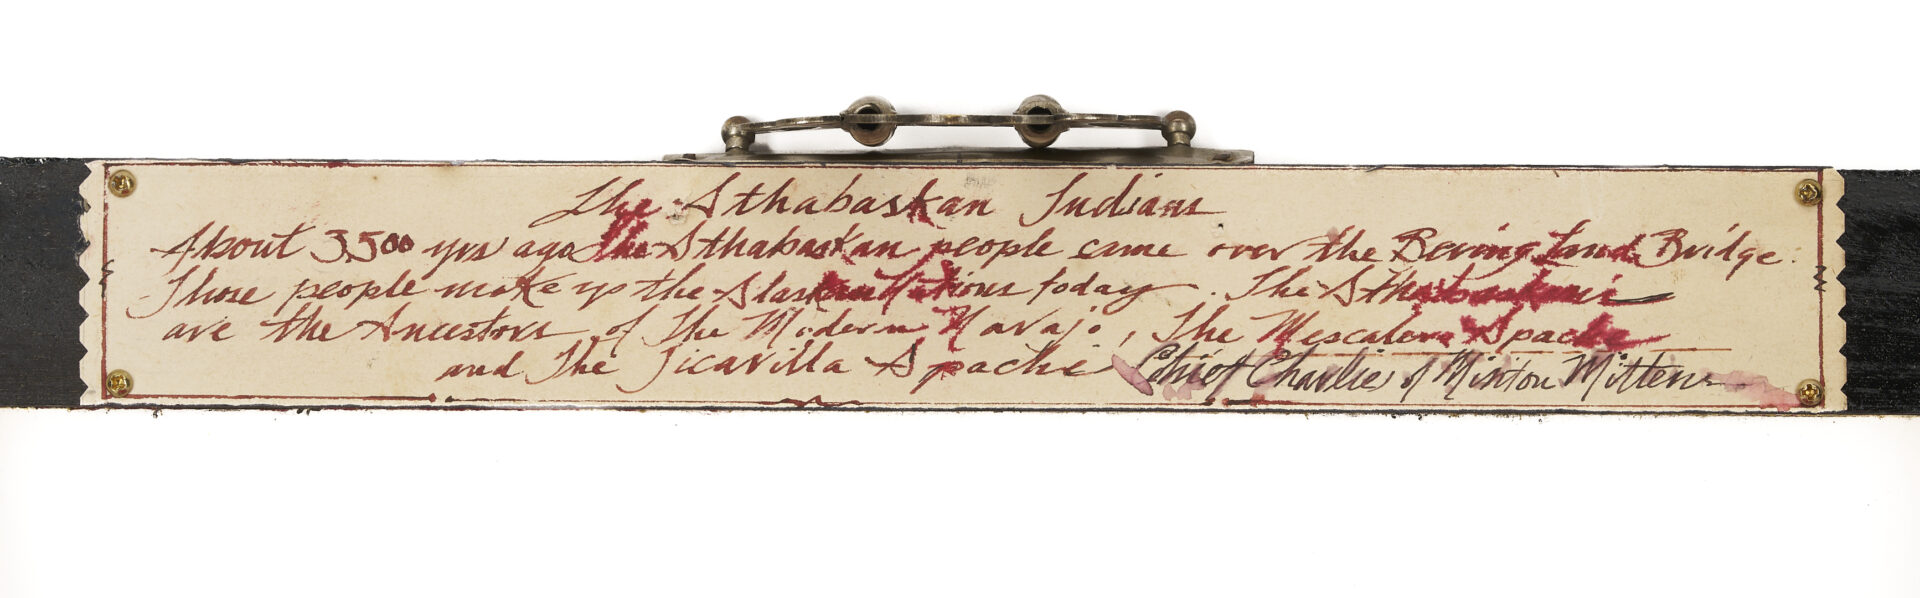 The Athabaskan Indians
About 3,500 yrs ago the Athabaskan people came over the Bering Land Bridge.
Those people make up the Alaskan Nations today. The Athabaskans
are the Ancestors of The Modern Navajo, The Mescalero Apache
and The Jicarilla Apache Chief Charlie of Minton Mittens